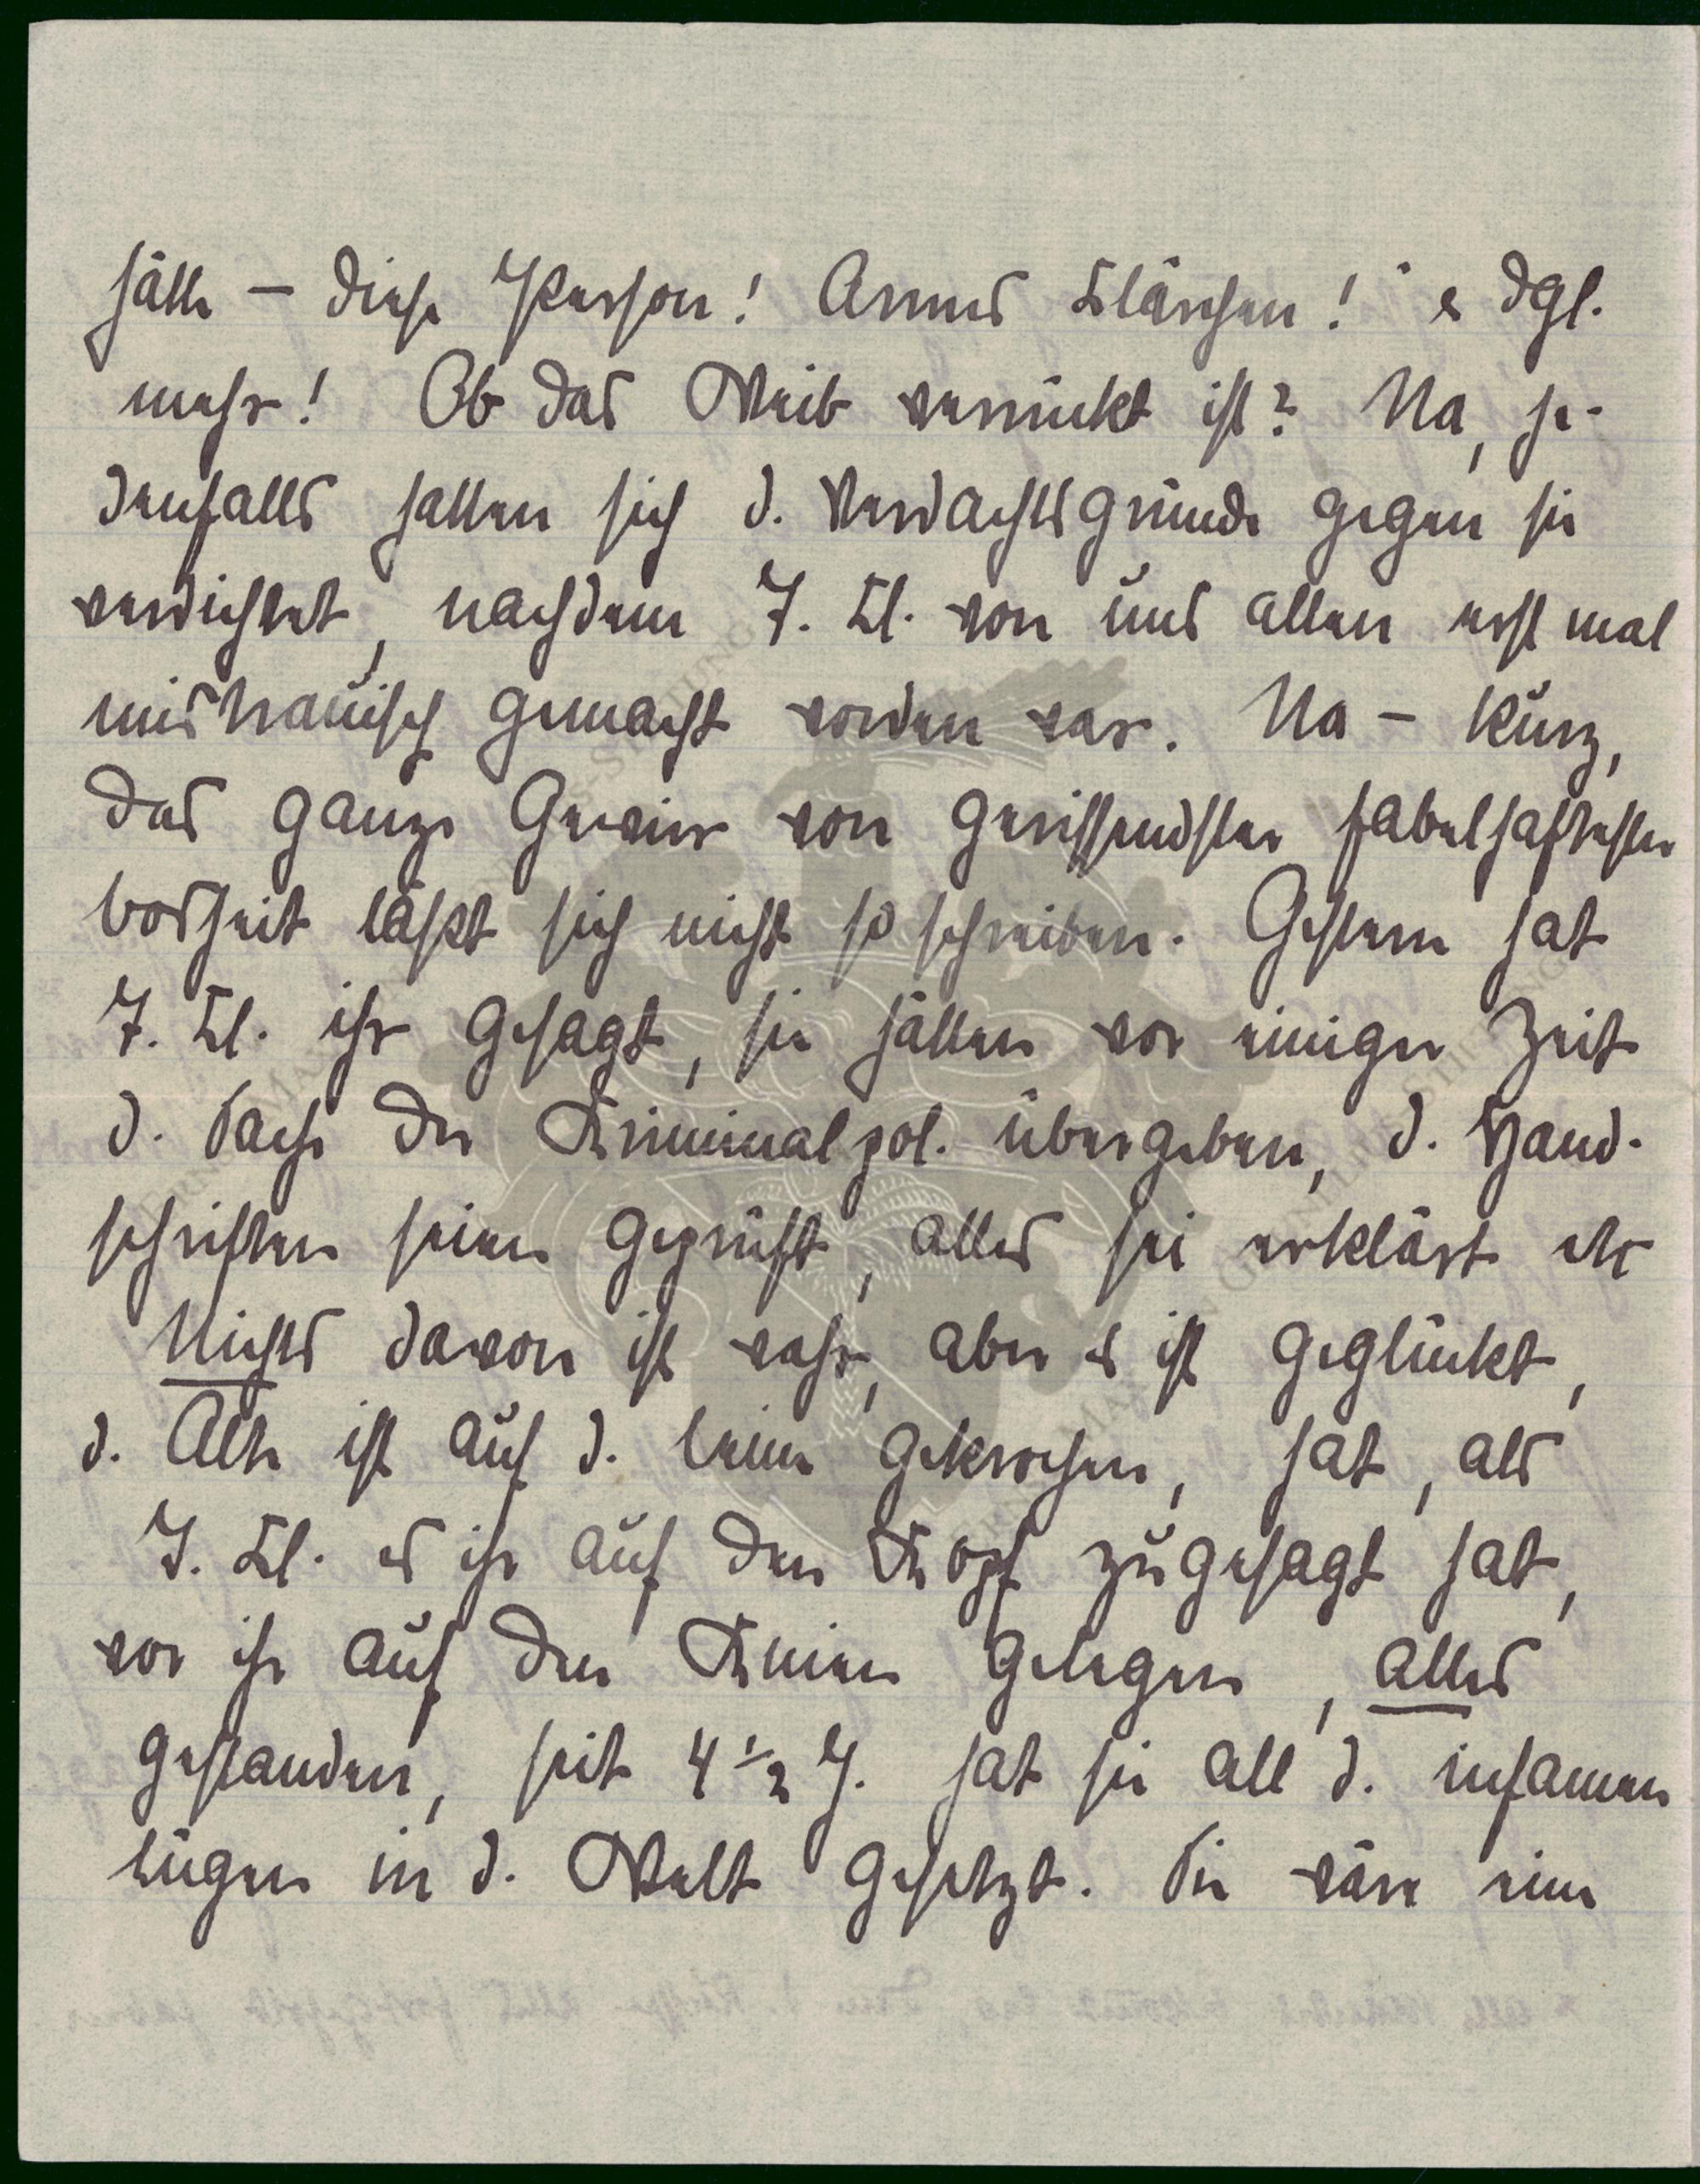 hätte – diese Person! Armes Klärchen!" & dgl.
mehr! Ob das Weib verrückt ist? Na, je-
denfalls hatten sich d. Verdachtsgründe gegen sie
verdichtet, nachdem T. Kl. von uns allen erst mal
mistrauisch gemacht worden war. Na – kurz,
das ganze Gewirr von gerissendster fabelhaftester
Bosheit läßt sich nicht so schreiben. Gestern hat
T. Kl. ihr gesagt, sie hätten vor einiger Zeit
d. Sache der Kriminalpol. übergeben, d. Hand-
schriften seien geprüft, alles sei erklärt etc
Nichts davon ist wahr, aber es ist geglückt,
d. Alte ist auf d. Leim gekrochen, hat, als
T. Kl. es ihr auf den Kopf zugesagt hat,
vor ihr auf den Knien gelegen, alles
gestanden, seit 4 1/2 J. hat sie all d. infamen
Lügen in d. Welt gesetzt. Sie wäre eine